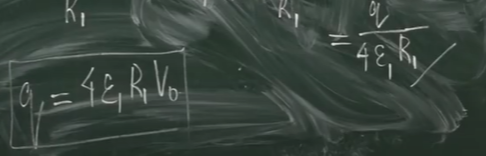 R₁ R₁
= q/4ε₁R₁
q = 4ε₁R₁V₀